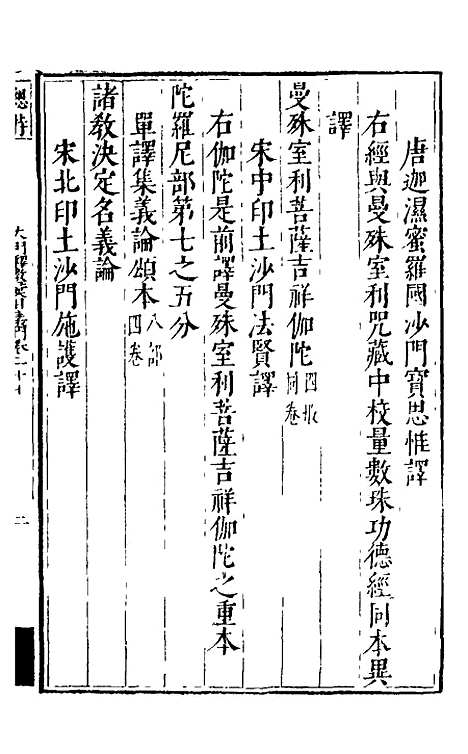 唐迦濕蜜羅國沙門寶思惟譯
右經與曼殊室利咒藏中校量數珠功德經同本異
譯
曼殊室利菩薩吉祥伽陀四紙同卷
宋中印土沙門法賢譯
右伽陀是前譯曼殊室利菩薩吉祥伽陀之重本
陀羅尼部第七之五分
單譯集義論頌本八部四卷
諸教決定名義論
宋北印土沙門施護譯
總持
二